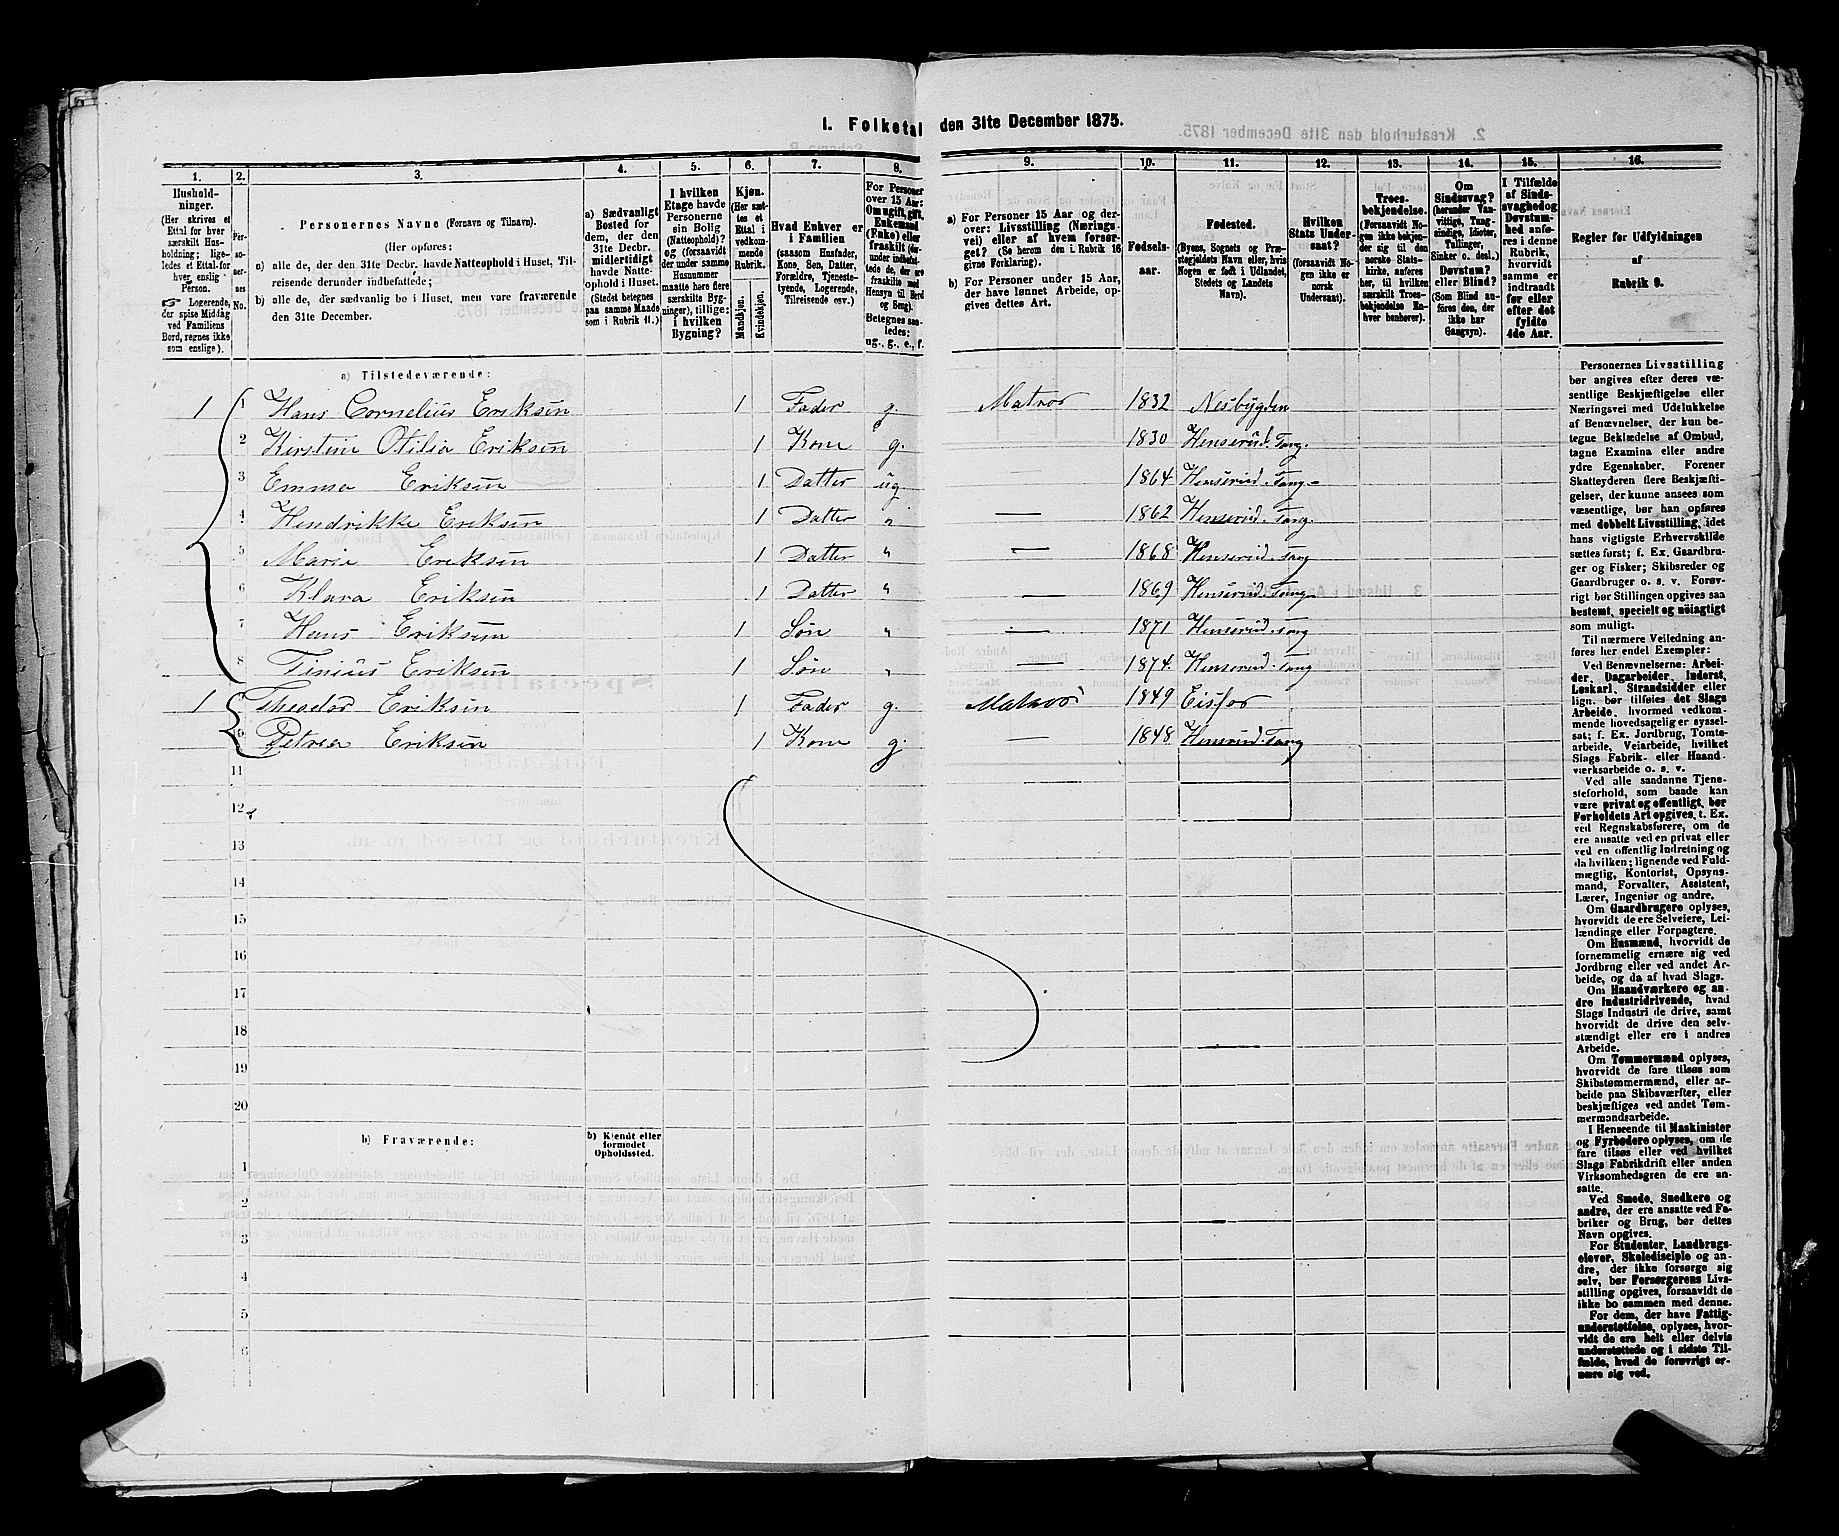 1. Folketal den 31te December 1875.
1. 2. 3. 4. 5. 6. 7. 8. 9. 10. 11. 12. 13. 14. 15. 16.
Hushold-
ninger.
(Her skrives et
Ettal for hver
særskilt Hus-
holdning; lige-
ledes et Ettal for
hver enslig
Person.
☞ Logerende,
der spise Middag
ved Familiens
Bord, regnes ikke
som enslige).
Per-
so-
ner-
nes
No.
Personernes Navne (Fornavn og Tilnavn).
(Her opføres:
a) alle de, der den 31te Decbr. havde Natteophold i Huset, Til-
reisende derunder indbefattede;
b) alle de, der sædvanlig bo i Huset, men vare fraværende
den 31te December.
a) Sædvanligt
Bosted for
dem, der den
31te Decbr.
midlertidigt
havde Natte-
ophold i Huset.
(Stedet betegnes
paa samme Maade
som i Rubrik 11.)
I hvilken
Etage havde
Personerne
sin Bolig
(Natteophold)?
og (forsaavidt
der under samme
Husnummer
maatte høre flere
særskilte Byg-
ninger), tillige:
i hvilken
Bygning?
Kjøn.
(Her sæt-
tes et
Ettal i
vedkom-
mende
Rubrik.
Mandkjøn.
Kvindekjøn.
Hvad Enhver er
i Familien
(saasom Husfader,
Kone, Søn, Datter,
Forældre, Tjeneste-
tyende, Logerende,
Tilreisende osv.)
For Personer
over 15 Aar:
Om ugift, gift,
Enkemand
(Enke) eller
fraskilt (der-
under indbefat-
tede de, der ere
fraskilte med
Hensyn til Bord
og Seng).
Betegnes saa-
ledes:
ug., g., e., f.
a) For Personer 15 Aar og der-
over: Livsstilling (Nærings-
vei) eller af hvem forsør-
get? (Se herom den i Rubrik 16
givne Forklaring).
b) For Personer under 15 Aar,
der have lønnet Arbeide, op-
gives dettes Art.
Fødsels-
aar.
Fødested.
(Byens, Sognets og Præ-
stegjeldets Navn eller, hvis
Nogen er født i Udlandet,
Stedets og Landets
Navn).
Hvilken
Stats Under-
saat?
(forsaavidt No-
gen ikke er
norsk
Undersaat).
Troes-
bekjendelse.
(Forsaavidt No-
gen ikke bekjen-
der sig til den
norske Stats-
kirke, anføres
her, til hvilken
særskilt Troes-
bekjendelse En-
hver henhører).
Om
Sindssvag?
(herunder Van-
vittige, Tung-
sindige, Idioter,
Tullinger,
Sinker o. desl.)
Døvstum?
eller Blind?
(Som Blind an-
føres den, der
ikke har
Gangsyn).
I Tilfælde
af Sinds-
svaghed og
Døvstum-
hed anfø-
res i denne
Rubrik,
hvorvidt
samme er
indtraadt
før eller
efter det
fyldte
4de Aar.
Regler for Udfyldningen
af
Rubrik 9.
a) Tilstedeværende:
1 1 Hans Cornelius Eriksen 1 Fader g. Matros 1832 Nesbygden
2 Kirstine Otilia Eriksen 1 Kone g. 1830 Henserud. Tang.
3 Emma Eriksen 1 Datter ug. — 1864 Henserud. Tang.
4 Hendrikke Eriksen 1 Datter " — 1862 Henserud. Tang.
5 Marie Eriksen 1 Datter " — 1868 Henserud. Tang
6 Klara Eriksen 1 Datter " — 1869 Henserud. Tang.
7 Hans Eriksen 1 Søn " — 1871 Henserud. Tang
8 Tinius Eriksen 1 Søn " — 1874. Henserud. Tang
1 9 Theodor Eriksen 1 Fader g. Matros 1849
10 Petrea Eriksen 1 Kone g. — 1848. Henserud. Tang
11
12
13
14
15
16
17
18
19
20
b) Fraværende:
b) Kjendt eller
formodet
Opholdssted.
1
2
3
4
5
6
Personernes Livsstilling
bør angives efter deres væ-
sentlige Beskjæftigelse eller
Næringsvei med Udelukkelse
af Benævnelser, der kun be-
tegne Beklædelse af Ombud,
tagne Examina eller andre
ydre Egenskaber. Forener
Skatteyderen flere Beskjæfti-
gelser, der kunne ansees som
væsentlige, bør han opføres
med dobbelt Livsstilling, idet
hans vigtigste Erhvervskilde
sættes først; f. Ex. Gaardbru-
ger og Fisker; Skibsreder og
Gaardbruger o. s. v. Forøv-
rigt bør Stillingen opgives saa
bestemt, specielt og nøiagtigt
som muligt.
Til nærmere Veiledning an-
føres her endel Exempler:
Ved Benævnelserne: Arbei-
der, Dagarbeider, Inderst,
Løskarl, Strandsidder eller
lign. bør tilføies det Slags
Arbeide, hvormed vedkom-
mende hovedsagelig er syssel-
sat; f. Ex. Jordbrug, Tomte-
arbeide, Veiarbeide, hvilket
Slags Fabrik- eller Haand-
værksarbeide o. s. v.
Ved alle saadanne Tjene-
steforhold, som baade kan
være privat og offentligt, bør
Forholdets Art opgives, t. Ex.
ved Regnskabsførere, om de
ere ansatte ved en privat eller
ved en offentlig Indretning og
da hvilken; lignende ved Fuld-
mægtig, Kontorist, Opsyns-
mand, Forvalter, Assistent,
Lærer, Ingeniør og andre.
Om Gaardbrugere oplyses,
hvorvidt de ere Selveiere, Lei-
lændinge eller Forpagtere.
Om Husmænd, hvorvidt de
fornemmelig ernære sig ved
Jordbrug eller ved andet Ar-
beide, og da af hvad Slags.
Om Haandværkere og an-
dre Industridrivende, hvad
Slags Industri de drive, samt
hvorvidt de drive den selv-
stændigt eller ere i andres
Arbeide.
Om Tømmermænd oplyses,
hvorvidt de fare tilsøs som
Skibstømmermænd, eller ar-
beide paa Skibsværfter, eller
beskjæftiges ved andet Tøm-
mermandsarbeide.
I Henseende til Maskinister
og Fyrbødere oplyses, om de
fare tilsøs eller ved hvilket
Slags Fabrikdrift eller anden
Virksomhedsgren de ere an-
satte.
Ved Smede, Snedkere og
andre, der ere ansatte ved Fa-
briker og Brug, bør dettes
Navn opgives.
For Studenter, Landbrugs-
elever, Skoledisciple og an-
dre, der ikke forsørge sig
selv, bør Forsørgerens Livs-
stilling opgives, forsaavidt de
ikke bo sammen med denne.
For dem, der have Fattig-
understøttelse, oplyses, hvor-
vidt de ere helt eller delvis
understøttede og i sidste Til-
fælde, hvad de forøvrigt er-
nære sig ved.